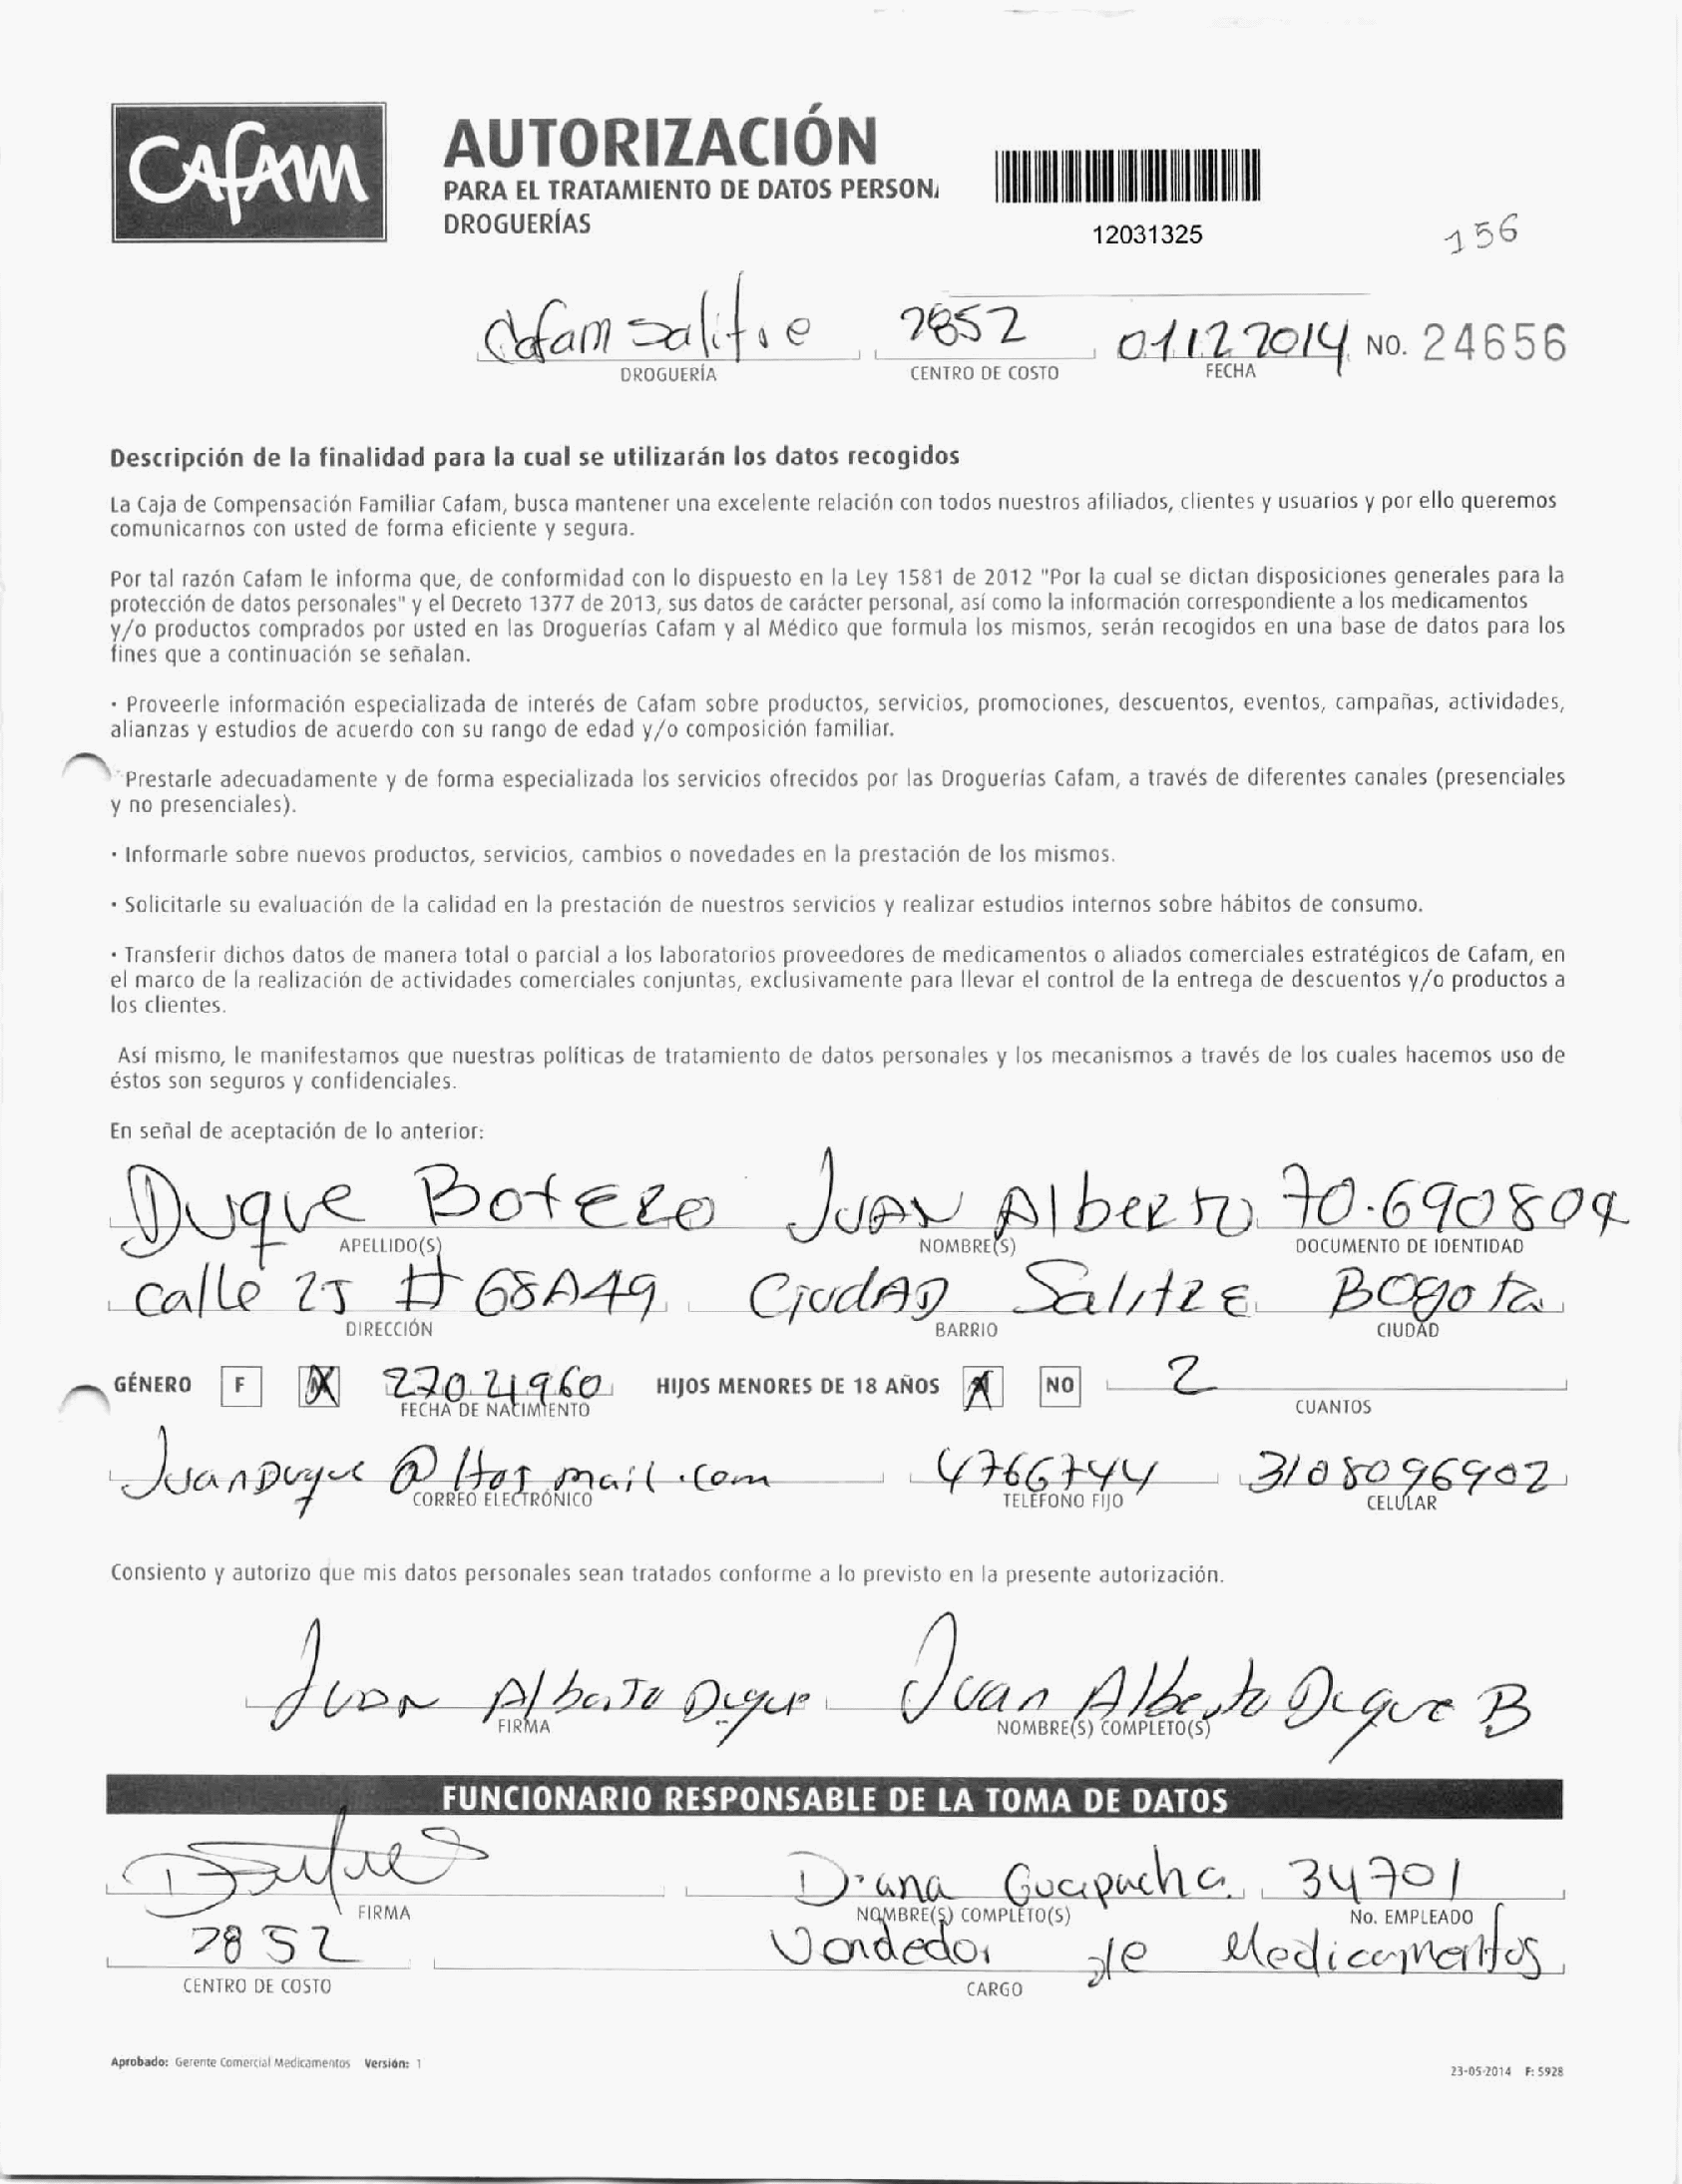 CAFAM
AUTORIZACIÓN
PARA EL TRATAMIENTO DE DATOS PERSON
DROGUERÍAS
12031325
156
Cafam Salitre 7852 01122014 NO. 24656
DROGUERÍA CENTRO DE COSTO FECHA
Descripción de la finalidad para la cual se utilizarán los datos recogidos
La Caja de Compensación Familiar Cafam, busca mantener una excelente relación con todos nuestros afiliados, clientes y usuarios y por ello queremos
comunicarnos con usted de forma eficiente y segura.
Por tal razón Cafam le informa que, de conformidad con lo dispuesto en la Ley 1581 de 2012 "Por la cual se dictan disposiciones generales para la
protección de datos personales" y el Decreto 1377 de 2013, sus datos de carácter personal, así como la información correspondiente a los medicamentos
y/o productos comprados por usted en las Droguerías Cafam y al Médico que formula los mismos, serán recogidos en una base de datos para los
fines que a continuación se señalan.
· Proveerle información especializada de interés de Cafam sobre productos, servicios, promociones, descuentos, eventos, campañas, actividades,
alianzas y estudios de acuerdo con su rango de edad y/o composición familiar.
· Prestarle adecuadamente y de forma especializada los servicios ofrecidos por las Droguerías Cafam, a través de diferentes canales (presenciales
y no presenciales).
· Informarle sobre nuevos productos, servicios, cambios o novedades en la prestación de los mismos.
· Solicitarle su evaluación de la calidad en la prestación de nuestros servicios y realizar estudios internos sobre hábitos de consumo.
· Transferir dichos datos de manera total o parcial a los laboratorios proveedores de medicamentos o aliados comerciales estratégicos de Cafam, en
el marco de la realización de actividades comerciales conjuntas, exclusivamente para llevar el control de la entrega de descuentos y/o productos a
los clientes.
Así mismo, le manifestamos que nuestras políticas de tratamiento de datos personales y los mecanismos a través de los cuales hacemos uso de
éstos son seguros y confidenciales.
En señal de aceptación de lo anterior:
Duque Botero Juan Alberto 70.690804
APELLIDO(S) NOMBRE(S) DOCUMENTO DE IDENTIDAD
calle 25 # 68A49 Ciudad Salitre Bogota
DIRECCIÓN BARRIO CIUDAD
GÉNERO F M 27021960 HIJOS MENORES DE 18 AÑOS NO 2
FECHA DE NACIMIENTO CUANTOS
JuanDuque @ Hotmail.com 4766744 3108096902
CORREO ELECTRÓNICO TELÉFONO FIJO CELULAR
Consiento y autorizo que mis datos personales sean tratados conforme a lo previsto en la presente autorización.
Juan Alberto Duque Juan Alberto Duque B
FIRMA NOMBRE(S) COMPLETO(S)
FUNCIONARIO RESPONSABLE DE LA TOMA DE DATOS
Diana Guapacha 34701
FIRMA NOMBRE(S) COMPLETO(S) No. EMPLEADO
7852 Vendedor de Medicamentos
CENTRO DE COSTO CARGO
Aprobado: Gerente Comercial Medicamentos Versión: 1
23-05-2014 F: 5928